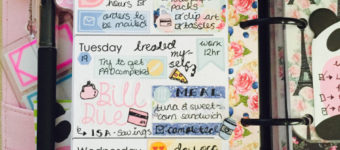 hours
orders to
be mailed
packs
or clip art
or tassles
Tuesday treated
my-
self
work
12hr
Try to get
PAT completed
Bill
Due
MEAL
tuna & sweet-
corn sandwich
completed
ISA-savings
Wednesday